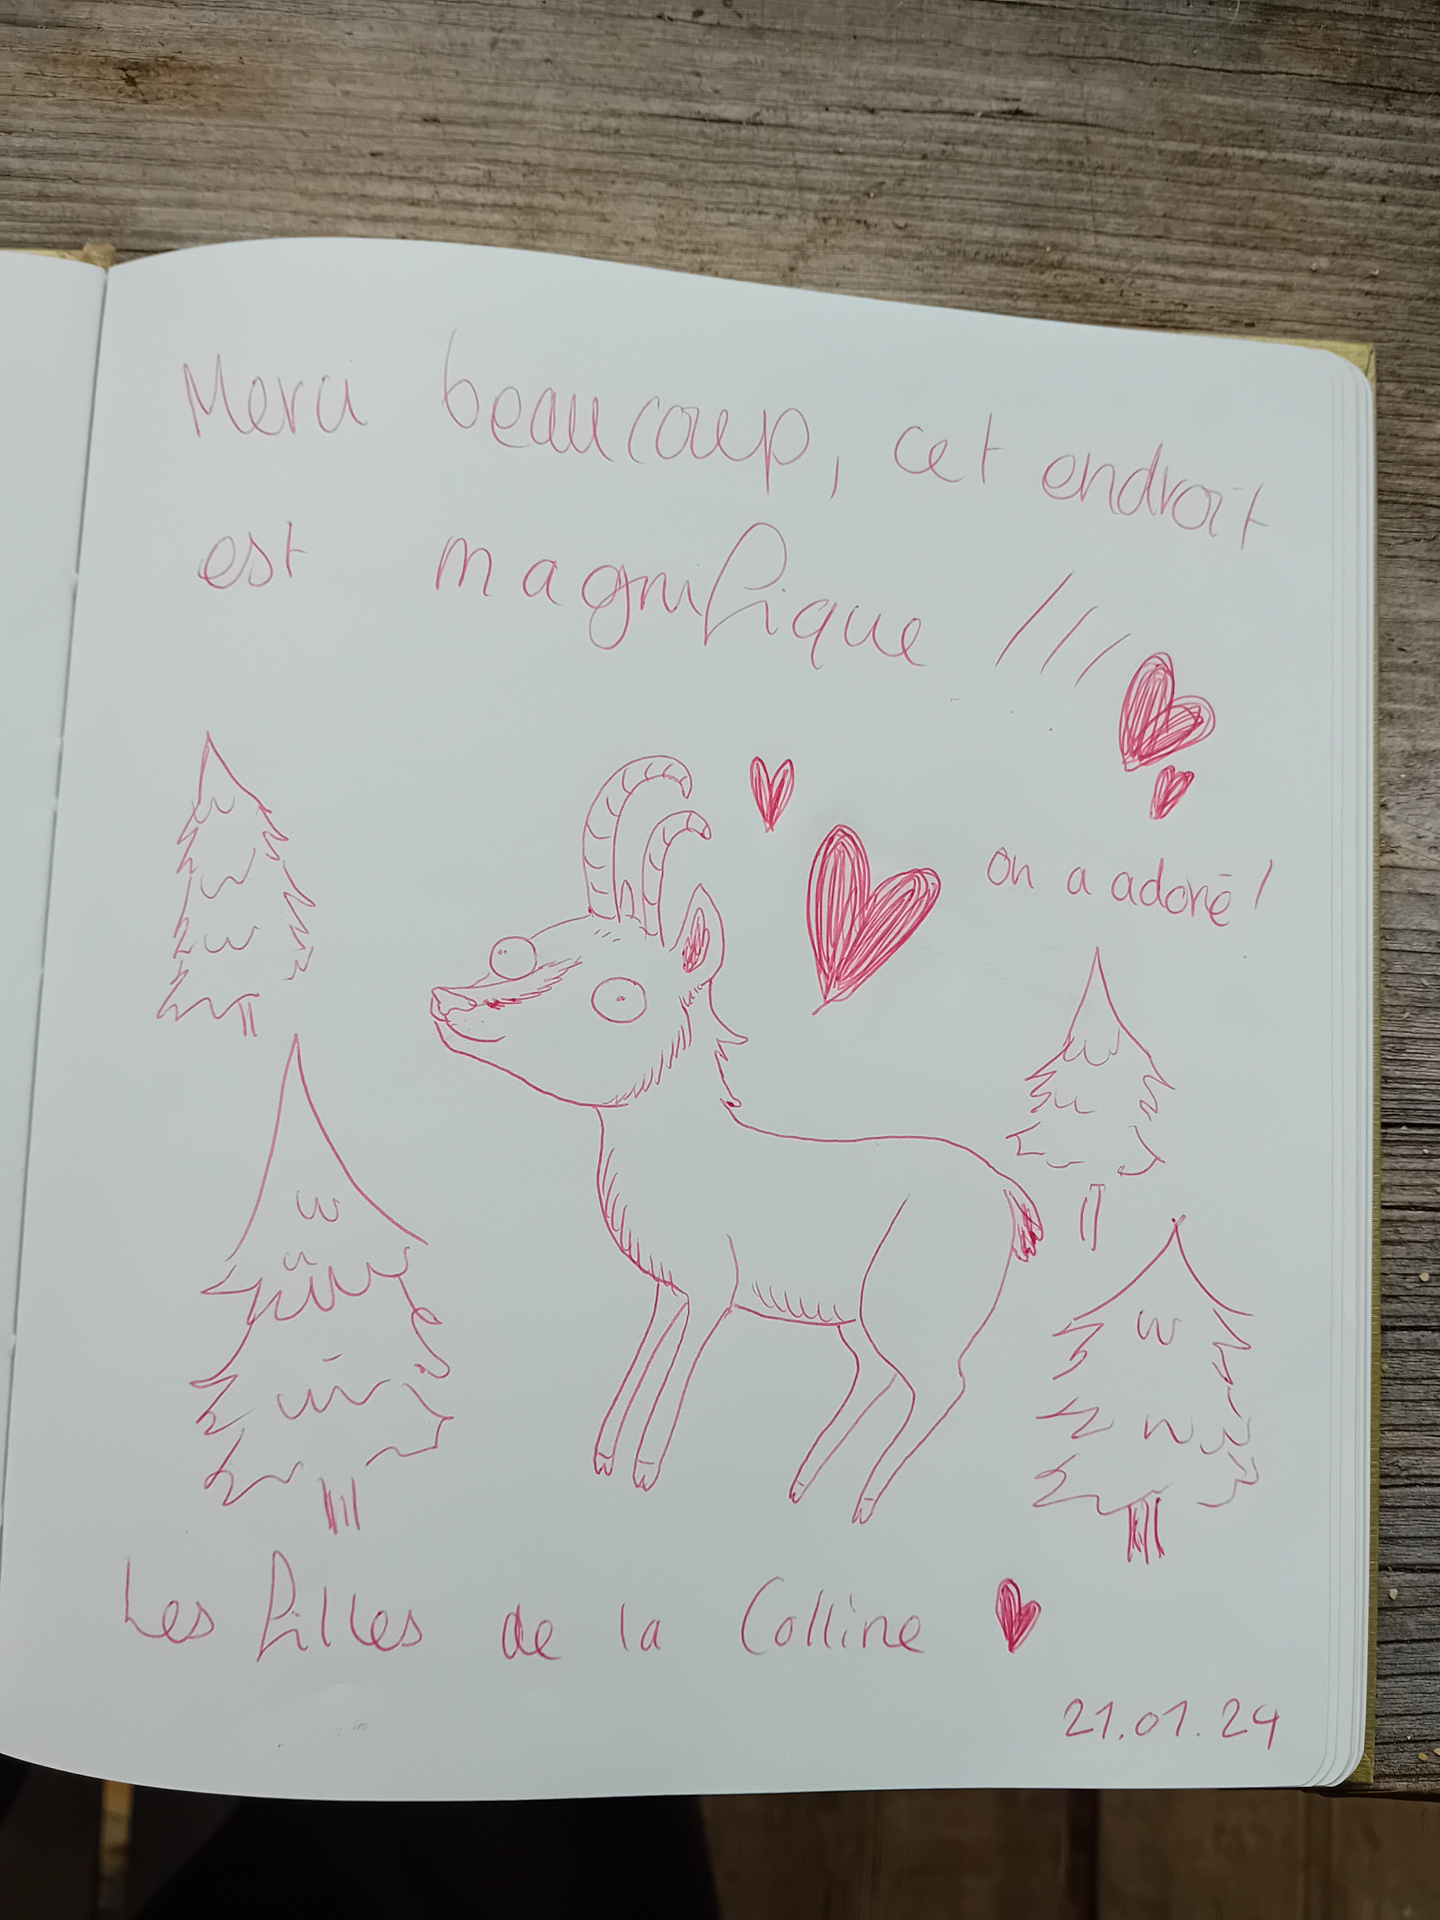 Merci beaucoup, cet endroit
est magnifique !!!
on a adoré !
Les filles de la Colline
21.01.24